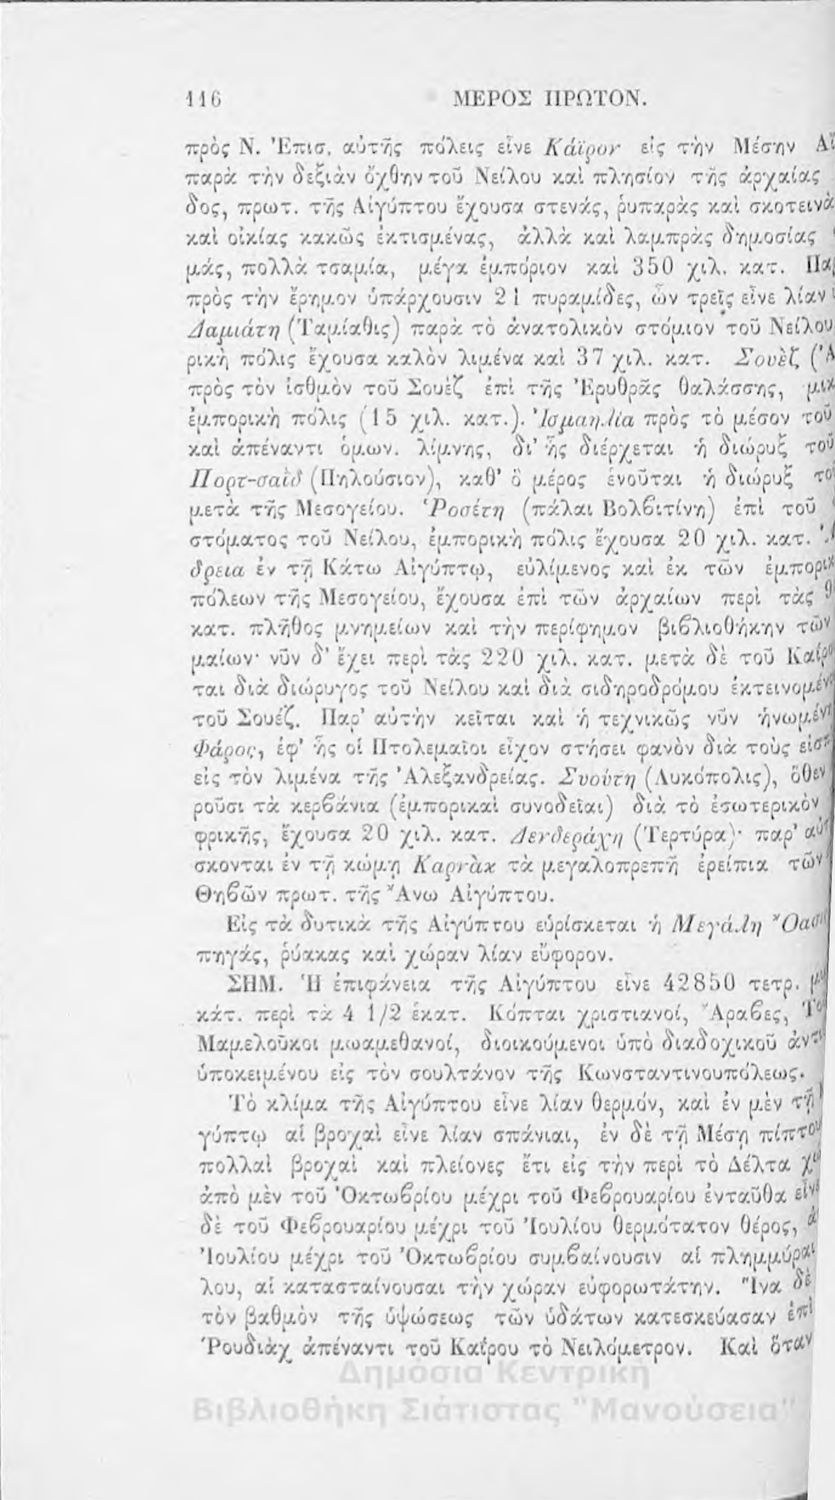 116 ΜΕΡΟΣ ΠΡΩΤΟΝ.
πρὸς Ν. Ἐπισ. αὐτῆς πόλεις εἶνε Κάϊρον εἰς τὴν Μέσην
παρὰ τὴν δεξιὰν ὄχθην τοῦ Νείλου καὶ πλησίον τῆς ἀρχαίας
δος, πρωτ. τῆς Αἰγύπτου ἔχουσα στενάς, ῥυπαρὰς καὶ σκοτεινὰ
καὶ οἰκίας κακῶς ἐκτισμένας, ἀλλὰ καὶ λαμπρὰς δημοσίας
μάς, πολλὰ τσαμία, μέγα ἐμπόριον καὶ 350 χιλ. κατ.
πρὸς τὴν ἔρημον ὑπάρχουσιν 21 πυραμίδες, ὧν τρεῖς εἶνε λίαν
Δαμιάτη (Ταμίαθις) παρὰ τὸ ἀνατολικὸν στόμιον τοῦ Νείλου
ρικὴ πόλις ἔχουσα καλὸν λιμένα καὶ 37 χιλ. κατ. Σουὲζ
πρὸς τὸν ἰσθμὸν τοῦ Σουὲζ ἐπὶ τῆς Ἐρυθρᾶς θαλάσσης, μικ
ἐμπορικὴ πόλις (15 χιλ. κατ.). Ἰσμαηλία πρὸς τὸ μέσον τοῦ
καὶ ἀπέναντι ὁμων. λίμνης, δι' ἧς διέρχεται ἡ διώρυξ τοῦ
Πορτ-σαὶδ (Πηλούσιον), καθ' ὃ μέρος ἑνοῦται ἡ διώρυξ το
μετὰ τῆς Μεσογείου. Ῥοσέτη (πάλαι Βολβιτίνη) ἐπὶ τοῦ
στόματος τοῦ Νείλου, ἐμπορικὴ πόλις ἔχουσα 20 χιλ. κατ.
δρεια ἐν τῇ Κάτω Αἰγύπτῳ, εὐλίμενος καὶ ἐκ τῶν ἐμπορικ
πόλεων τῆς Μεσογείου, ἔχουσα ἐπὶ τῶν ἀρχαίων περὶ τὰς 9
κατ. πλῆθος μνημείων καὶ τὴν περίφημον βιβλιοθήκην τῶν
μαίων· νῦν δ' ἔχει περὶ τὰς 220 χιλ. κατ. μετὰ δὲ τοῦ Καΐρο
ται διὰ διώρυγος τοῦ Νείλου καὶ διὰ σιδηροδρόμου ἐκτεινομέν
τοῦ Σουέζ. Παρ' αὐτὴν κεῖται καὶ ἡ τεχνικῶς νῦν ἡνωμέν
Φάρος, ἐφ' ἧς οἱ Πτολεμαῖοι εἶχον στήσει φανὸν διὰ τοὺς εἰσ
εἰς τὸν λιμένα τῆς Ἀλεξανδρείας. Συούτη (Λυκόπολις), ὅθεν
ροῦσι τὰ κερβάνια (ἐμπορικαὶ συνοδεῖαι) διὰ τὸ ἐσωτερικὸν
φρικῆς, ἔχουσα 20 χιλ. κατ. Δενδεράχη (Τερτύρα)· παρ' αὐτ
σκονται ἐν τῇ κώμῃ Καρνὰκ τὰ μεγαλοπρεπῆ ἐρείπια τῶν
Θηβῶν πρωτ. τῆς Ἄνω Αἰγύπτου.
Εἰς τὰ δυτικὰ τῆς Αἰγύπτου εὑρίσκεται ἡ Μεγάλη Ὄασι
πηγάς, ῥύακας καὶ χώραν λίαν εὔφορον.
ΣΗΜ. Ἡ ἐπιφάνεια τῆς Αἰγύπτου εἶνε 42850 τετρ.
κάτ. περὶ τὰ 4 1/2 ἑκατ. Κόπται χριστιανοί, Ἄραβες,
Μαμελοῦκοι μωαμεθανοί, διοικούμενοι ὑπὸ διαδοχικοῦ ἀντι
ὑποκειμένου εἰς τὸν σουλτάνον τῆς Κωνσταντινουπόλεως.
Τὸ κλίμα τῆς Αἰγύπτου εἶνε λίαν θερμόν, καὶ ἐν μὲν τῇ
γύπτῳ αἱ βροχαὶ εἶνε λίαν σπάνιαι, ἐν δὲ τῇ Μέσῃ πίπτου
πολλαὶ βροχαὶ καὶ πλείονες ἔτι εἰς τὴν περὶ τὸ Δέλτα
ἀπὸ μὲν τοῦ Ὀκτωβρίου μέχρι τοῦ Φεβρουαρίου ἐνταῦθα εἶνε
δὲ τοῦ Φεβρουαρίου μέχρι τοῦ Ἰουλίου θερμότατον θέρος,
Ἰουλίου μέχρι τοῦ Ὀκτωβρίου συμβαίνουσιν αἱ πλημμύραι
λου, αἱ κατασταίνουσαι τὴν χώραν εὐφορωτάτην. Ἵνα δὲ
τὸν βαθμὸν τῆς ὑψώσεως τῶν ὑδάτων κατεσκεύασαν ἐπὶ
Ῥουδιὰχ ἀπέναντι τοῦ Καΐρου τὸ Νειλόμετρον. Καὶ ὅταν
Δημόσια Κεντρική
Βιβλιοθήκη Σιάτιστας "Μανούσεια"